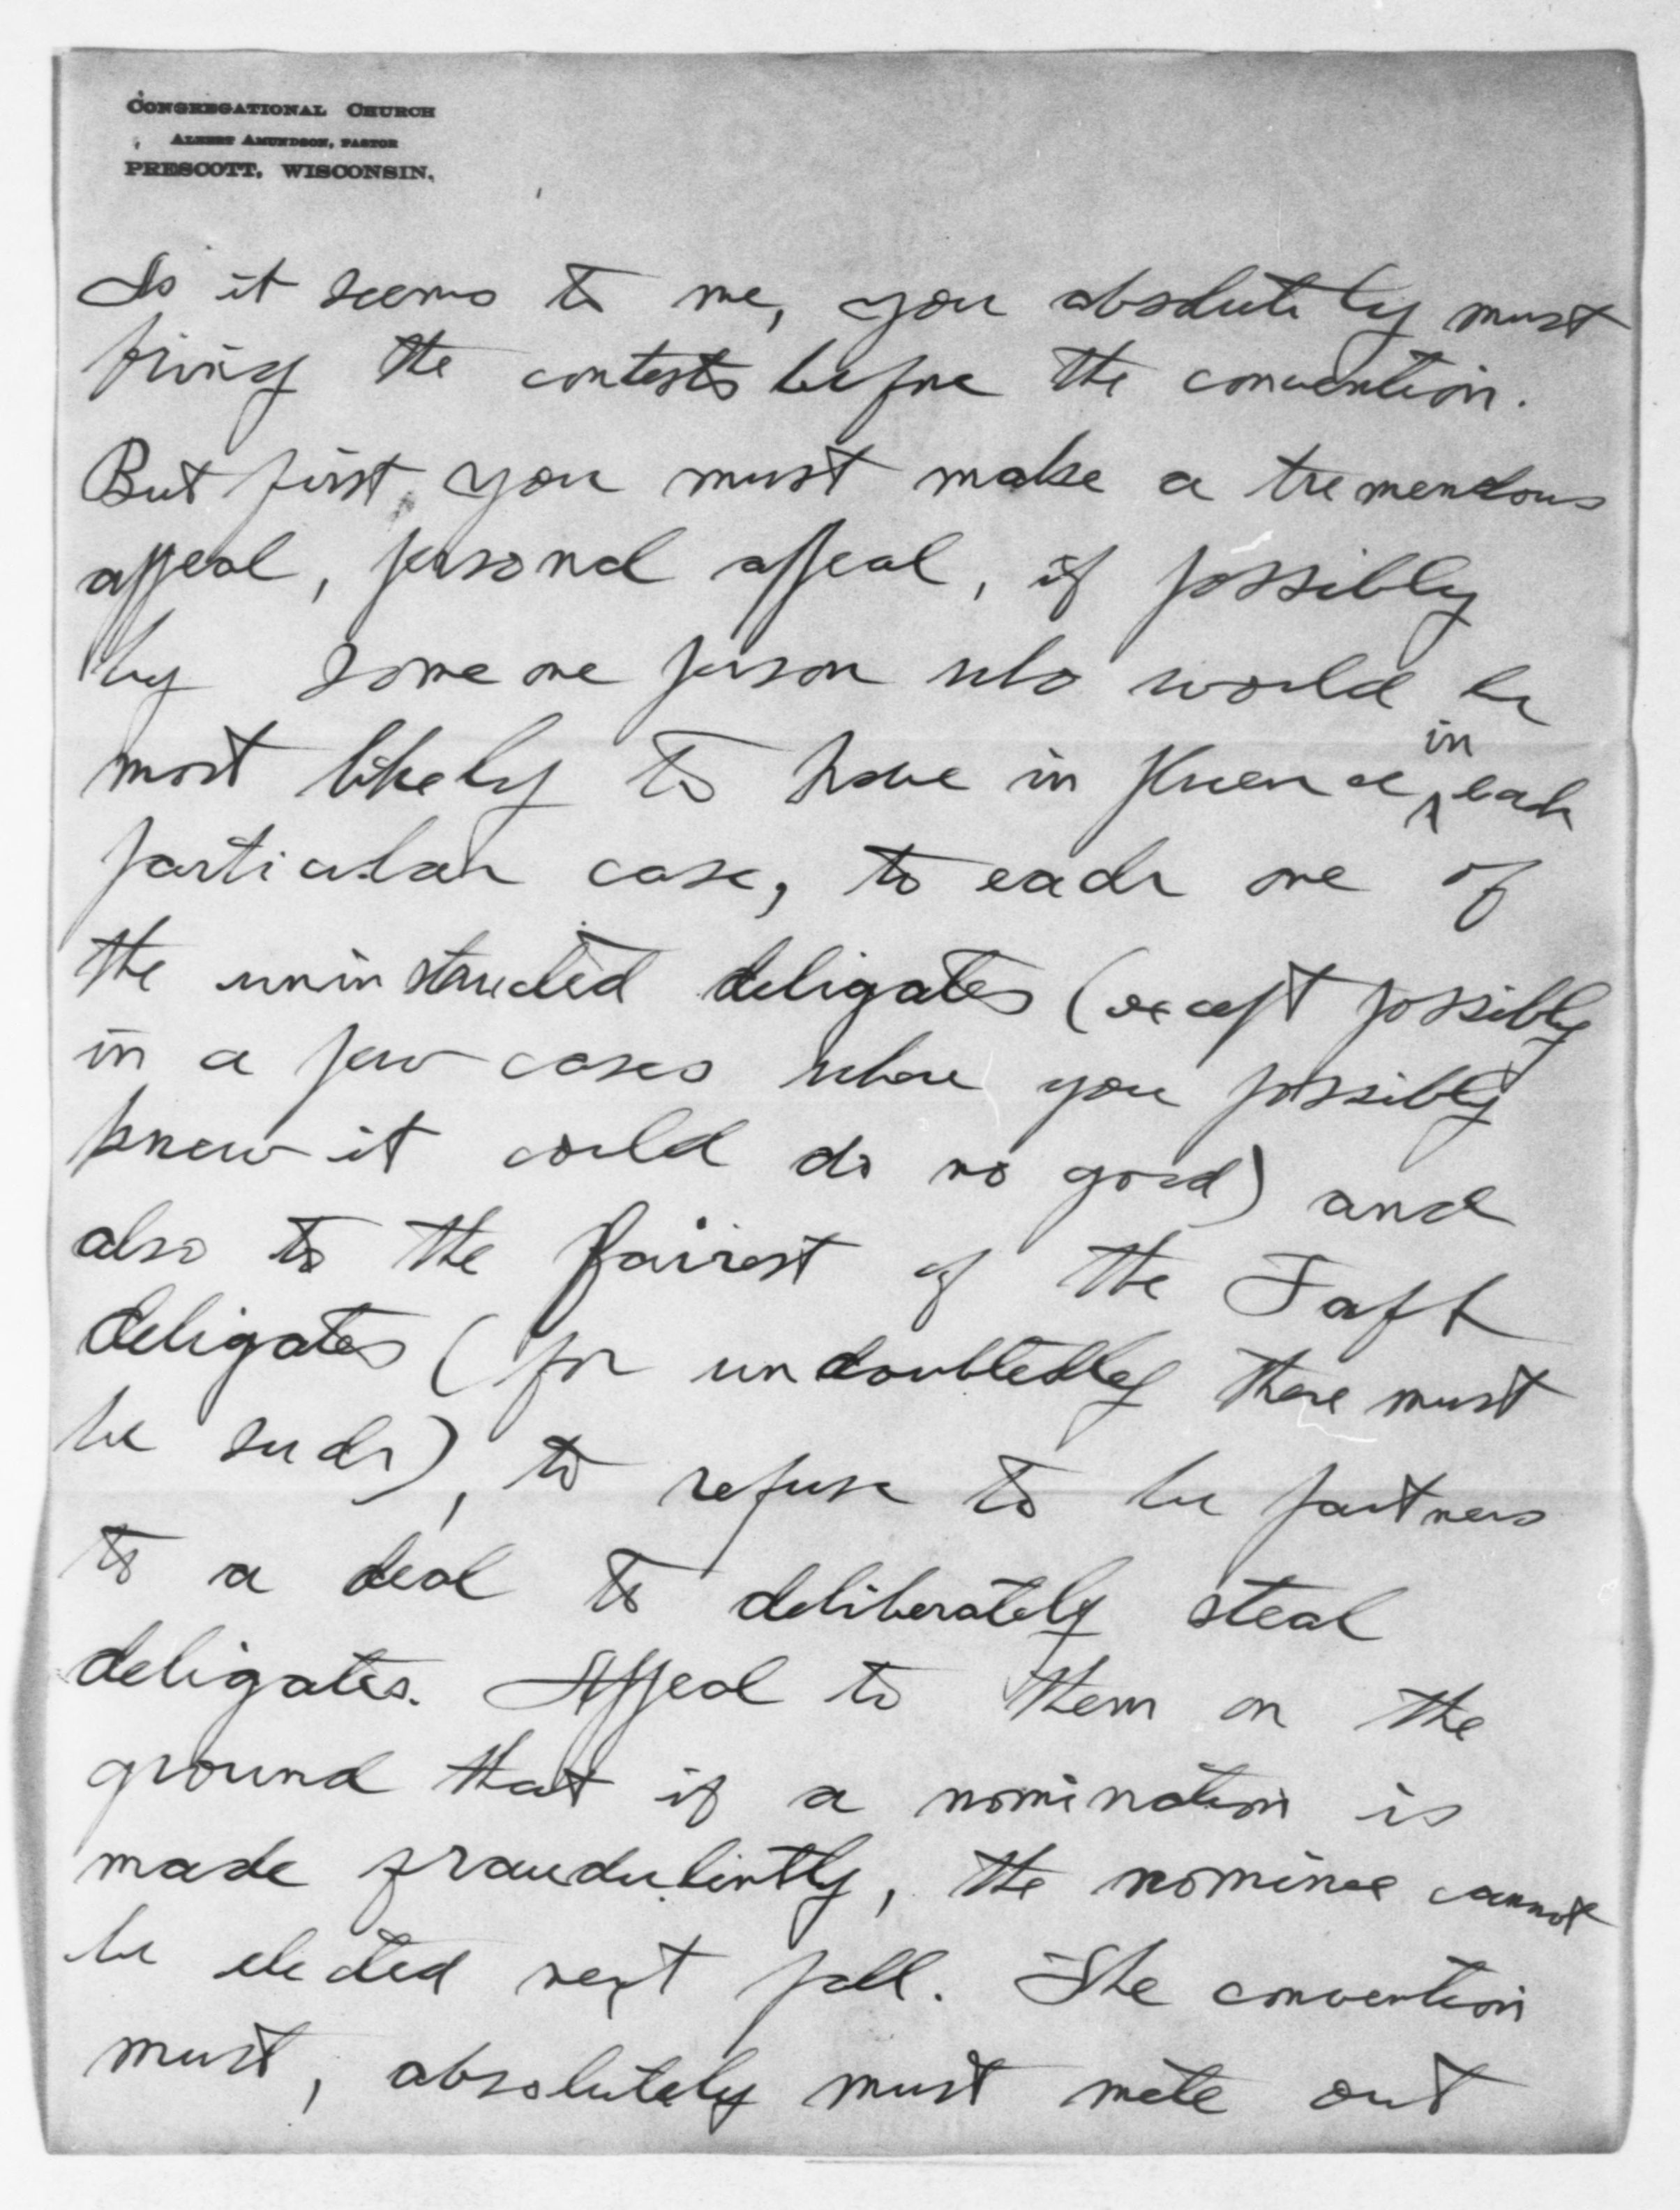 CONGREGATIONAL CHURCH
ALBERT AMUNDSON, PASTOR
PRESCOTT, WISCONSIN.
As it seems to me, you absolutely must
bring the contests before the convention.
But first you must make a tremendous
appeal, personal appeal, if possibly
by some one person who would be
most likely to have influence in each
particular case, to each one of
the uninstructed deligates (except possibly
in a few cases where you possibly
knew it could do no good) and
also to the fairest of the Taft
deligates (for undoubtedly there must
be such), to refuse to be partners
to a deal to deliberately steal
deligates. Appeal to them on the
ground that if a nomination is
made fraudulintly, the nominee cannot
be elected next fall. The convention
must, absolutely must mete out